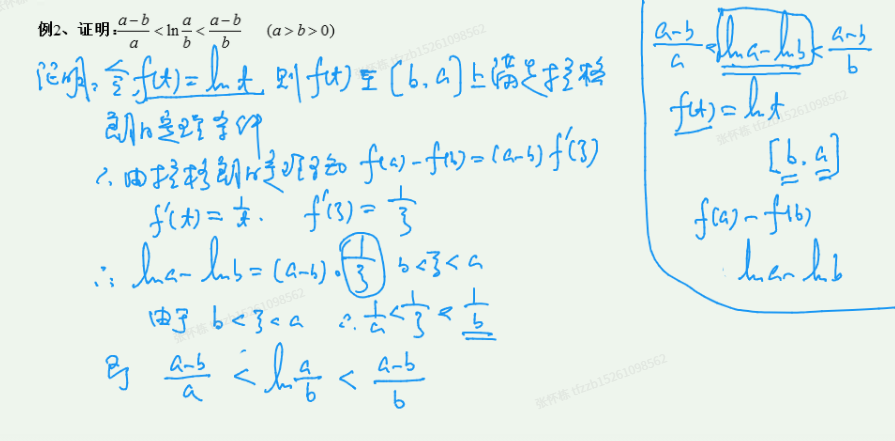 例2、证明:\frac{a-b}{a}<\ln\frac{a}{b}<\frac{a-b}{b} (a>b>0)
证明:令 f(t)=ln t 则 f(t) 在 [b,a] 上满足拉格
朗日定理条件
∴由拉格朗日定理可知 f(a)-f(b)=(a-b)f'(ξ)
f'(t)=\frac{1}{t}. f'(ξ)=\frac{1}{ξ}
∴ ln a-ln b=(a-b)·\frac{1}{ξ} b<ξ<a
由于 b<ξ<a ∴\frac{1}{a}<\frac{1}{ξ}<\frac{1}{b}
即 \frac{a-b}{a}<ln\frac{a}{b}<\frac{a-b}{b}
\frac{a-b}{a}<ln a-ln b<\frac{a-b}{b}
f(t)=ln t
[b,a]
f(a)-f(b)
ln a-ln b
张怀栋 tlzzb15261098562